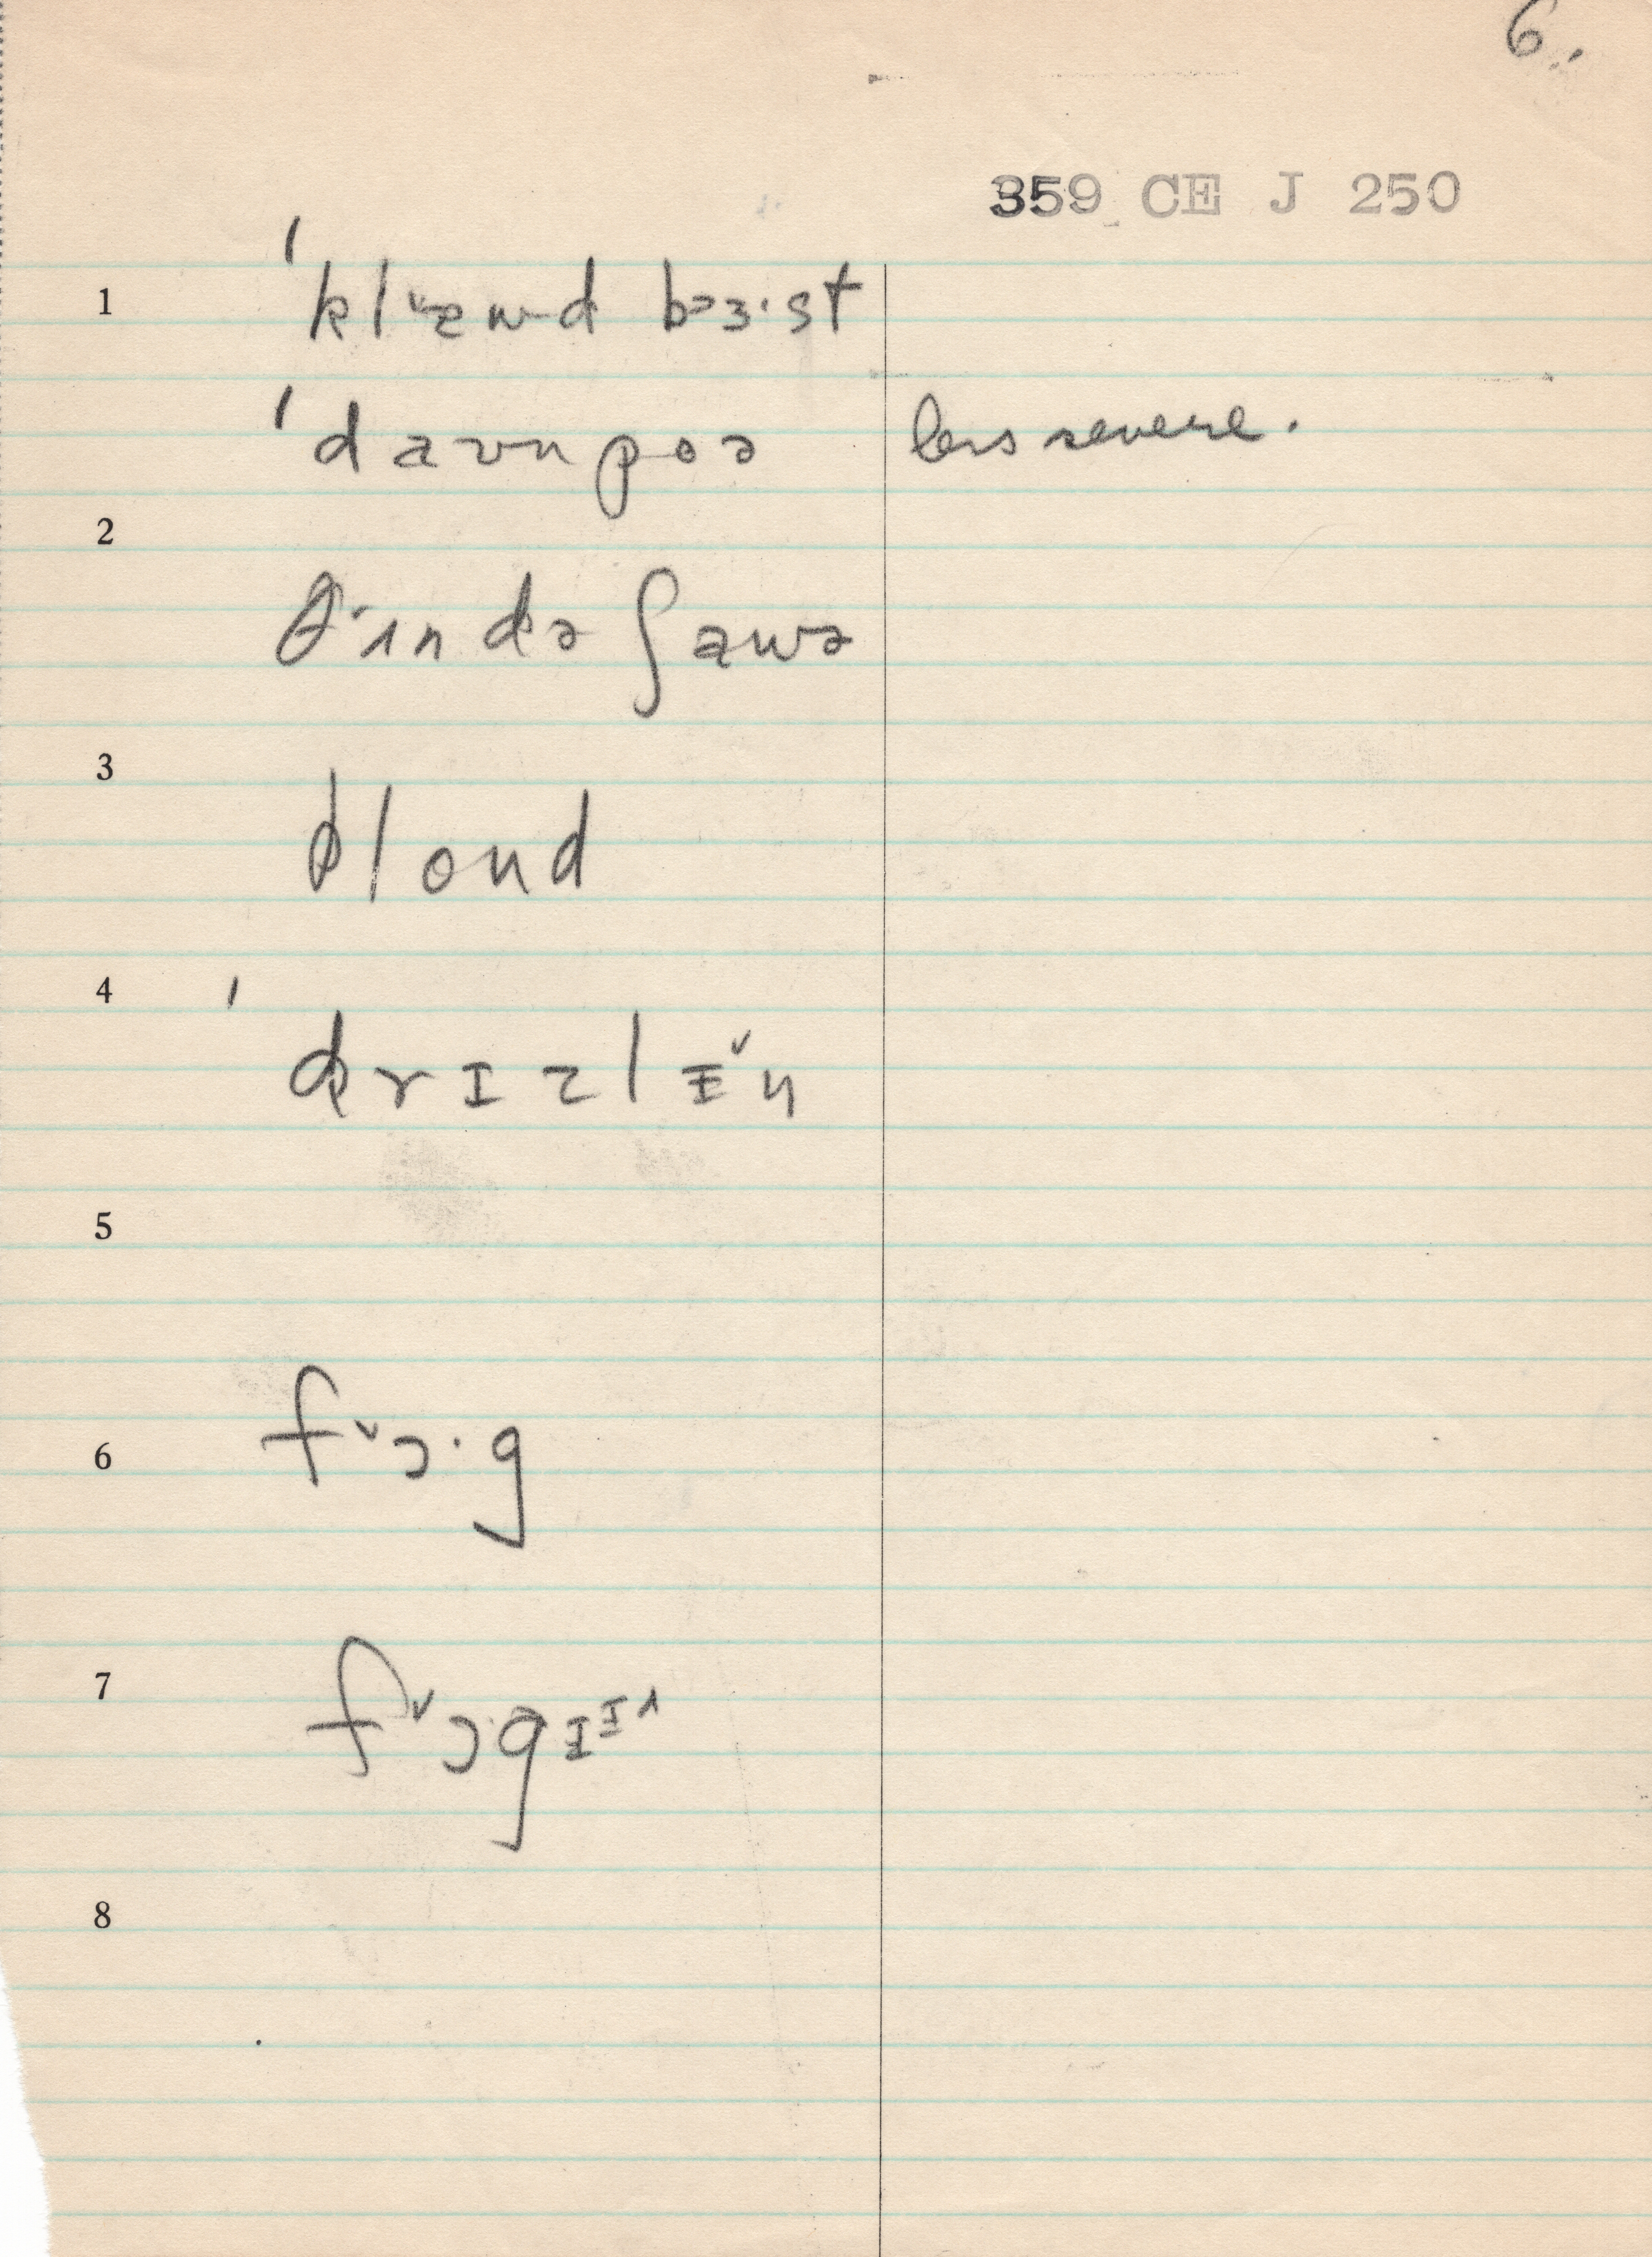 6.
359 CE J 250
1
ˈklᵛæwd bɜ·st
ˈdaʊnpoə
less severe.
2
θ·ɪndə ʃaʊə
3
blond
4
ˈdrɪzlɪ̵ᵛŋ
5
6
fᵛɔ·g
7
fᵛɔgɪᴵ^
8